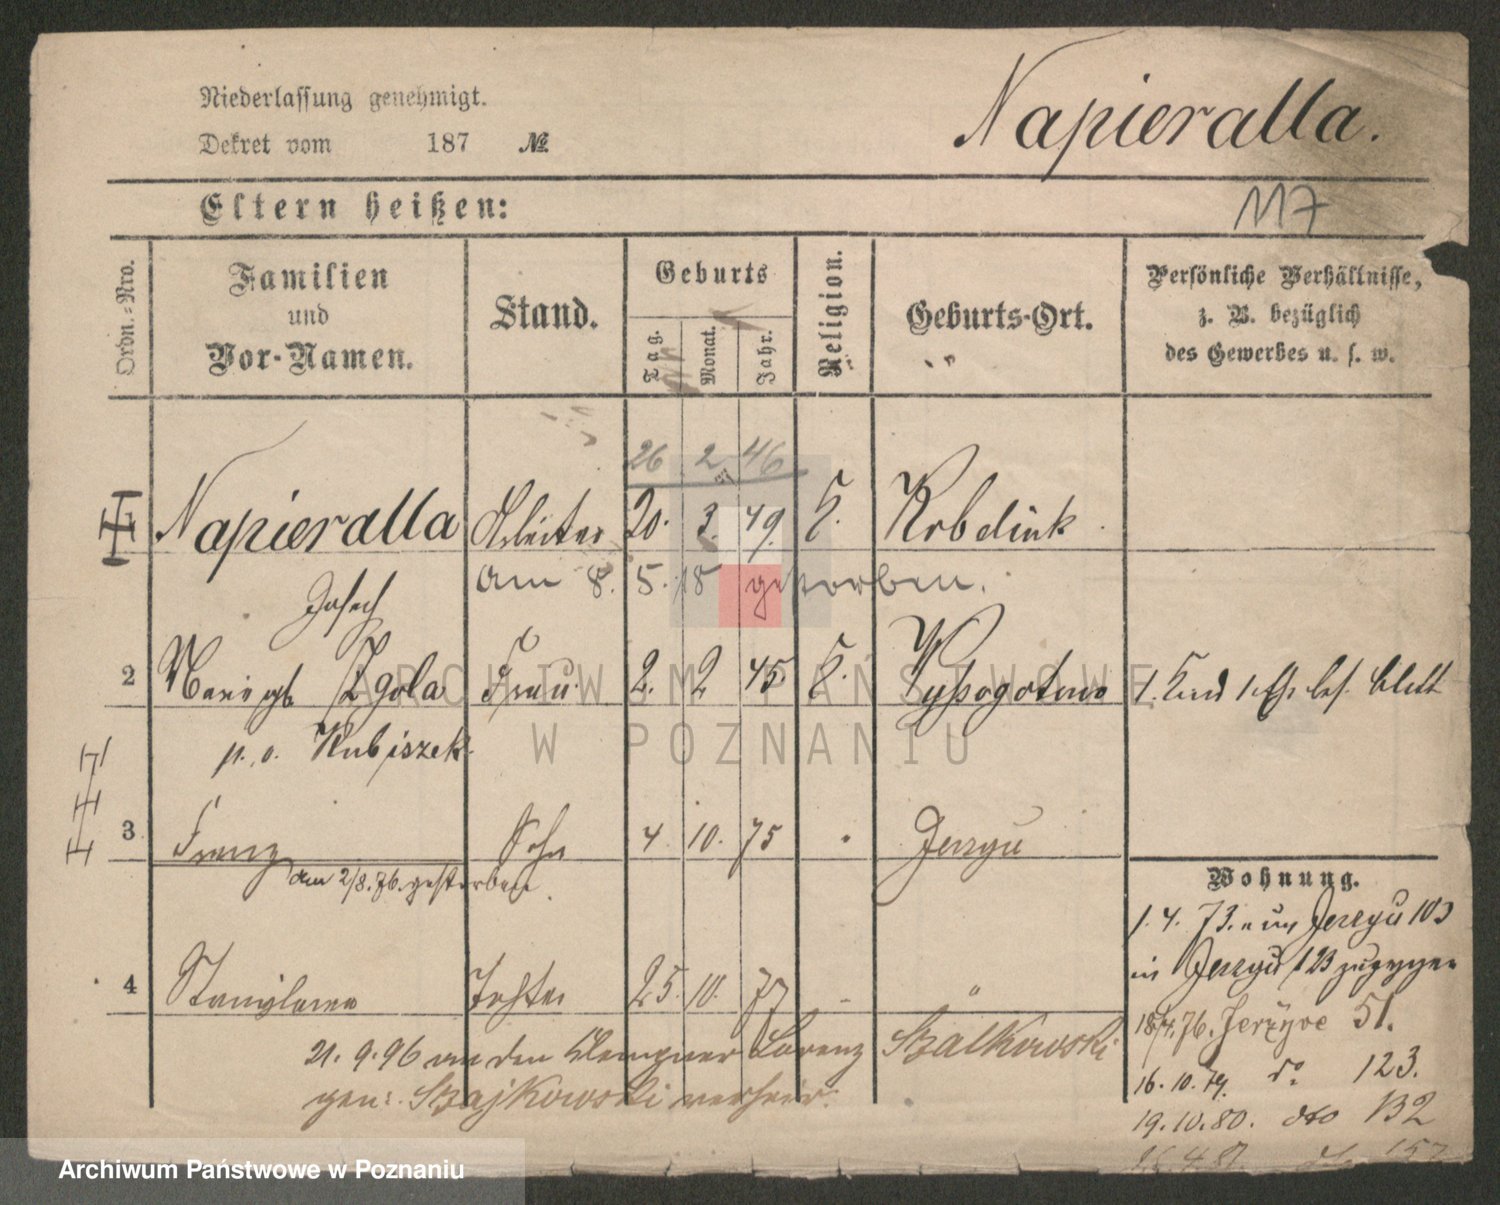 Niederlassung genehmigt.
Dekret vom 187 №
Napieralla.
Eltern heißen:
117
Ordn.-Nro.
Familien
und
Vor-Namen.
Stand.
Geburts
Tag.
Monat.
Jahr.
Religion.
Geburts-Ort.
Persönliche Verhältnisse,
z. B. bezüglich
des Gewerbes u. s. w.
26 2 46
Napieralla Arbeiter 20. 3. 49. K.
am 8. 5. 18 gestorben.
Josef
2 Zgola Frau 2. 2 45. K. 1. Kind
p. o. Kubiszek.
3 Franz Sohn 4. 10. 75 Jerzyu
am 2/8. 76. gestorben.
4 Tochter 25. 10. 77 "
21. 9. 96 an den Klempner Lorenz Szalkowski
gen: Szajkowski verheir.
Wohnung.
1. 4. 73. Jerzyu 103
in Jerzyu 123
18/4. 76. Jerzyce 51.
16. 10. 79. do 123.
19. 10. 80. dto 132
157
ARCHIWUM PAŃSTWOWE
W POZNANIU
Archiwum Państwowe w Poznaniu